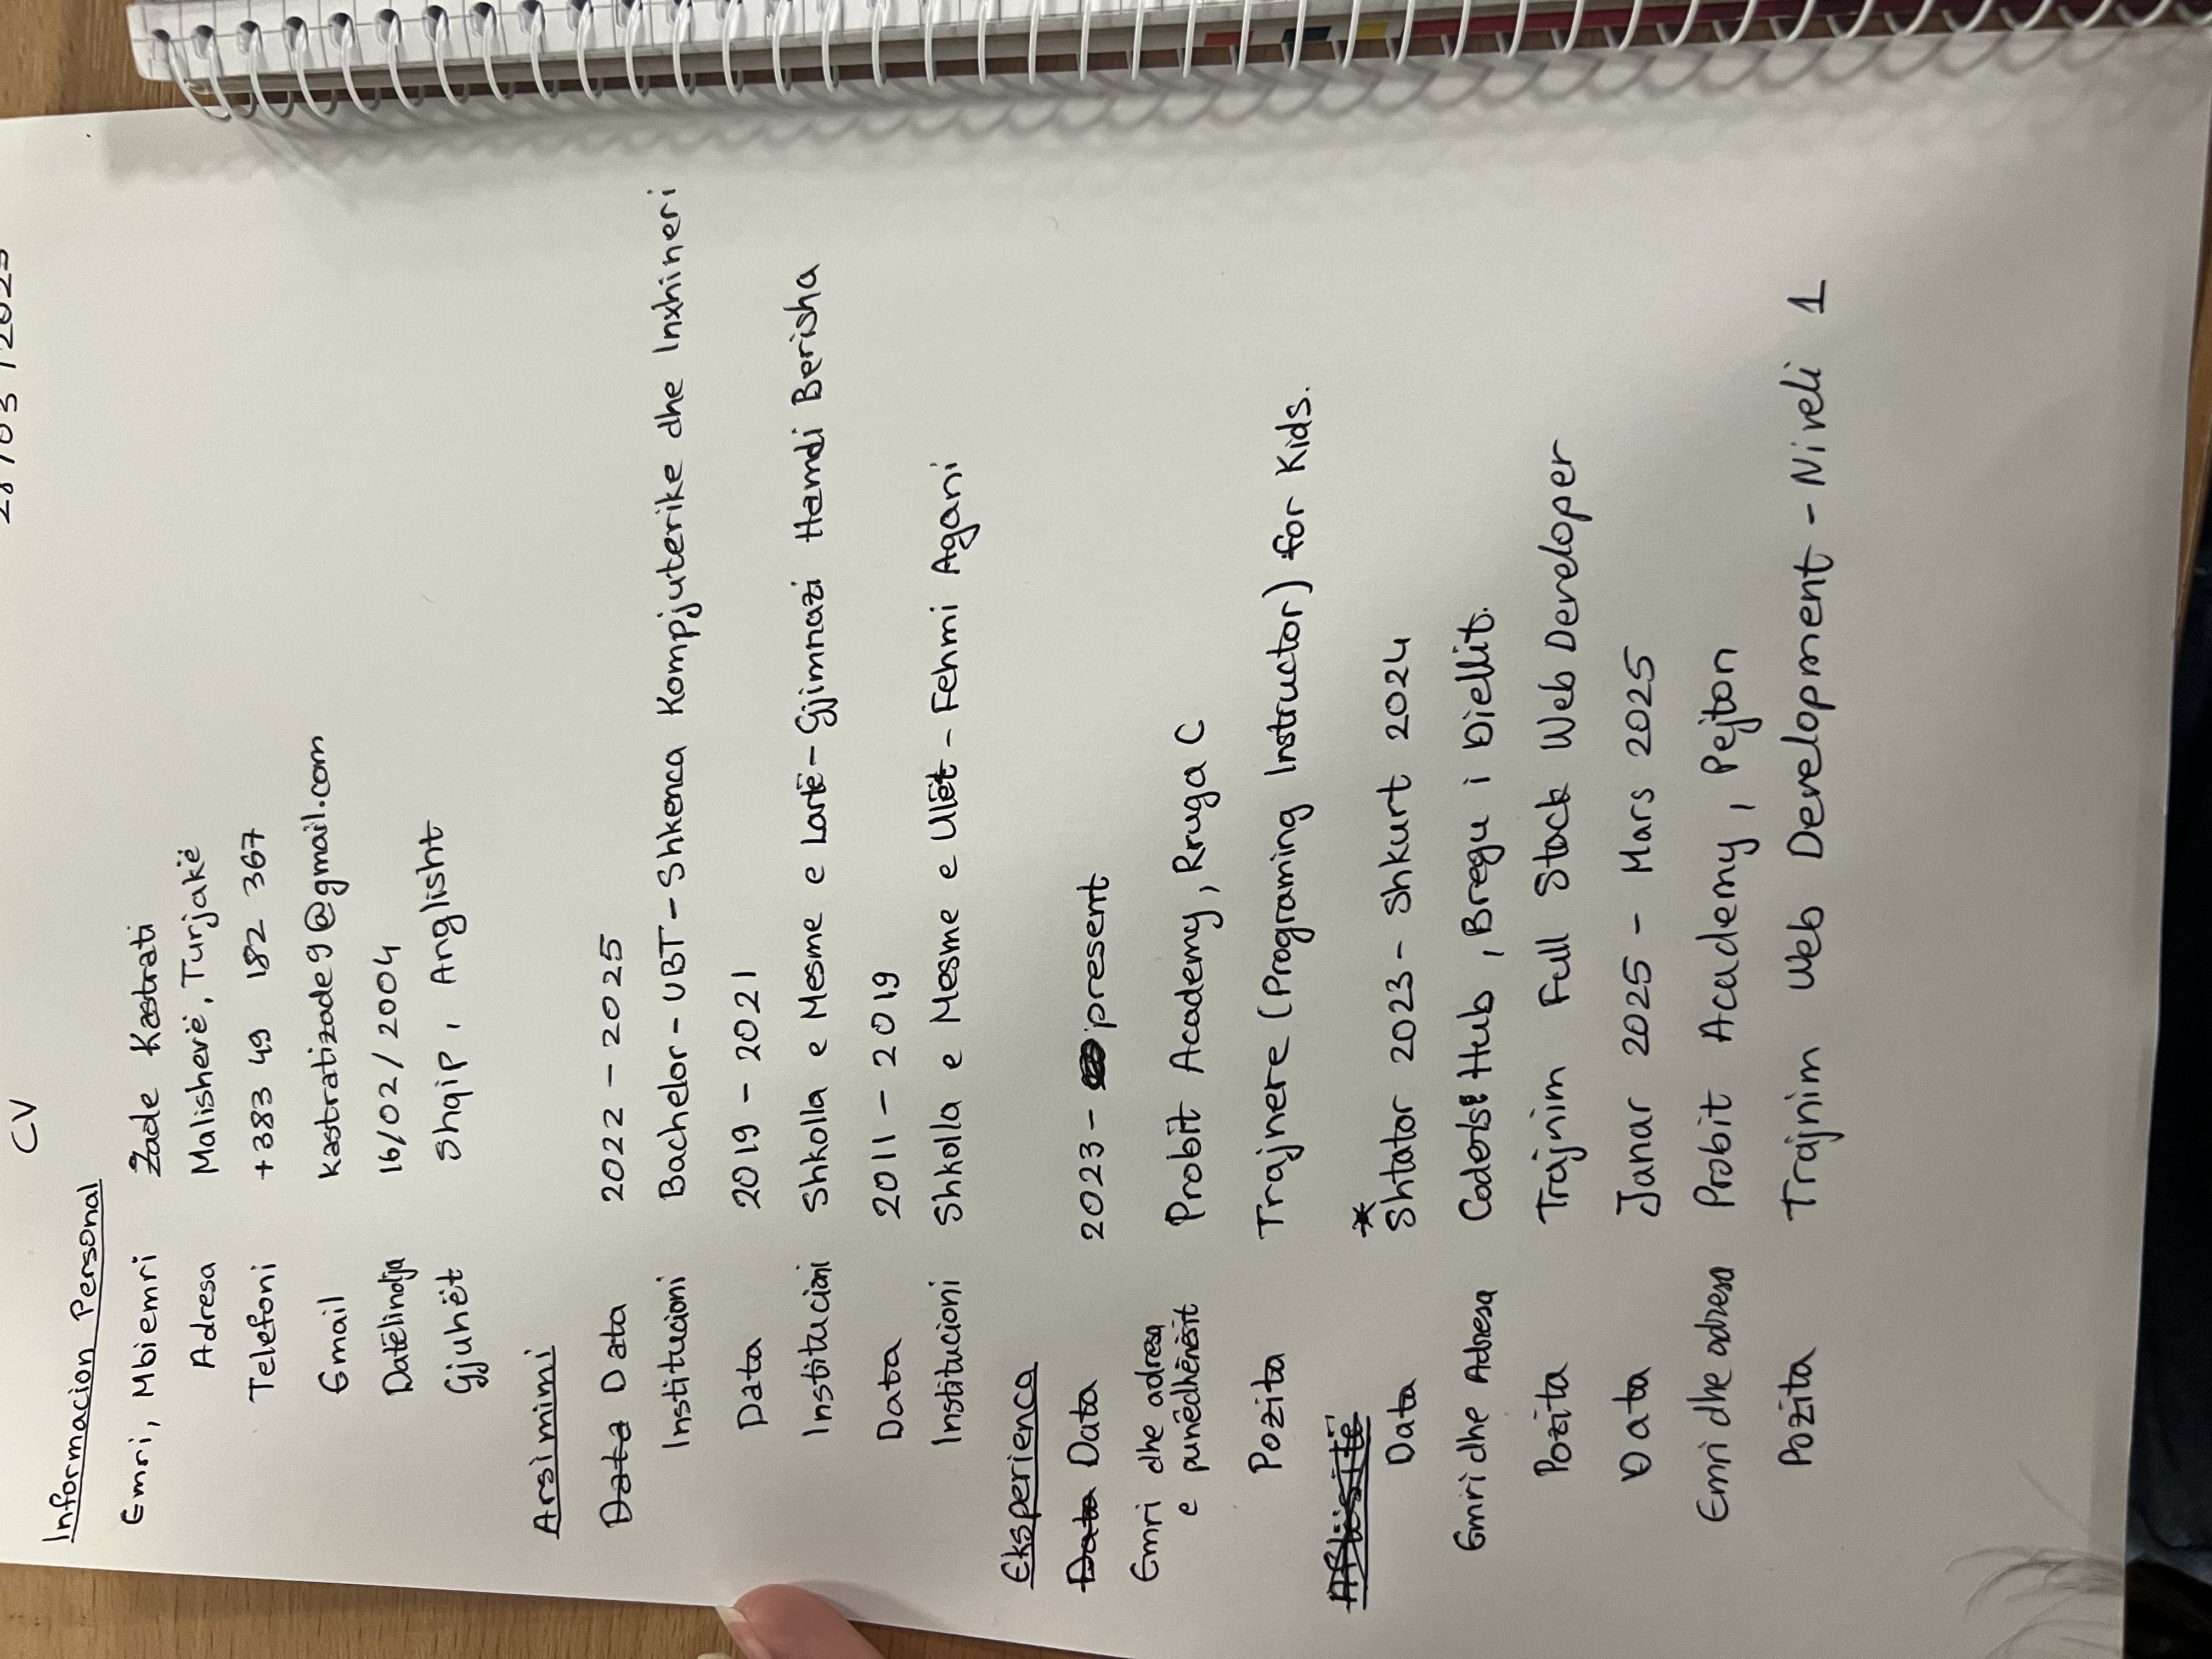 CV
28/03/2025
Informacion Personal
Emri, Mbiemri Zade Kastrati
Adresa Malishevë, Turjakë
Telefoni +383 49 182 367
Email kastratizade9@gmail.com
Datëlindja 16/02/2004
Gjuhët Shqip, Anglisht
Arsimimi
Data Data 2022 - 2025
Institucioni Bachelor - UBT - Shkenca Kompjuterike dhe Inxhineri
Data 2019 - 2021
Institucioni Shkolla e Mesme e Lartë - Gjimnazi Hamdi Berisha
Data 2011 - 2019
Institucioni Shkolla e Mesme e Ulët - Fehmi Agani
Eksperienca
Data Data 2023 - present
Emri dhe adresa
e punëdhënësit Probit Academy, Rruga C
Pozita Trajnere (Programing Instructor) for Kids.
Aftësitë
*
Data Shtator 2023 - Shkurt 2024
Emri dhe Adresa Hub, Bregu i Diellit.
Pozita Trajnim Full Stack Web Developer
Data Janar 2025 - Mars 2025
Emri dhe adresa Probit Academy, Pejton
Pozita Trajnim Web Development - Niveli 1